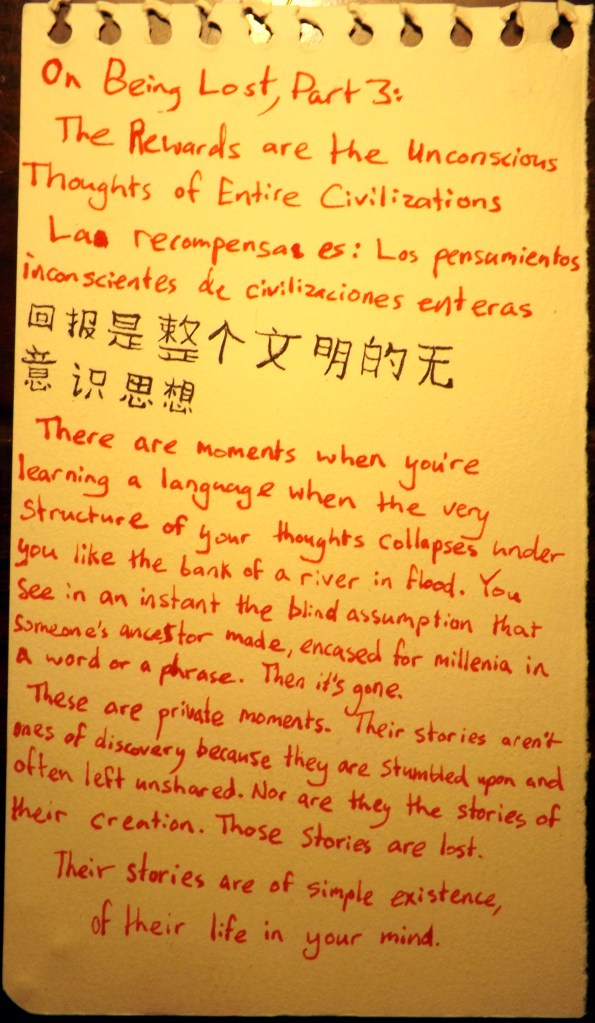 On Being Lost, Part 3:
The Rewards are the Unconscious
Thoughts of Entire Civilizations
La recompensa es: Los pensamientos
inconscientes de civilizaciones enteras
回报是整个文明的无
意识思想
There are moments when you're
learning a language when the very
structure of your thoughts collapses under
you like the bank of a river in flood. You
see in an instant the blind assumption that
someone's ancestor made, encased for millenia in
a word or a phrase. Then it's gone.
These are private moments. Their stories aren't
ones of discovery because they are stumbled upon and
often left unshared. Nor are they the stories of
their creation. Those stories are lost.
Their stories are of simple existence,
of their life in your mind.